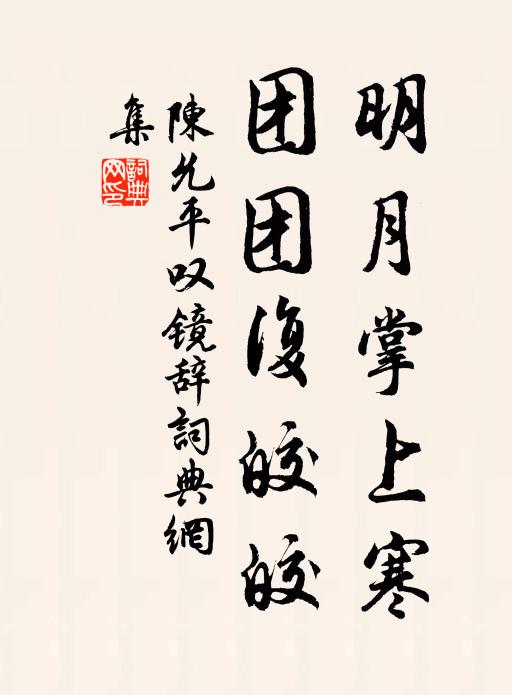 明月掌上寒
团团復皎皎
陳允平叹镜辞詞典網
集
詞典網印